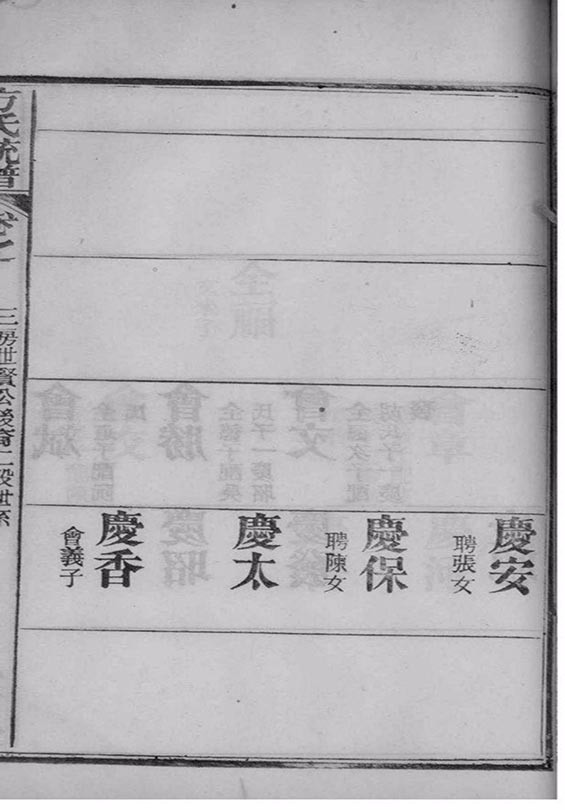 慶安
聘張女
慶保
聘陳女
慶太
慶香
會義子
方氏統譜
卷之一
三房世賢公後裔二段世系